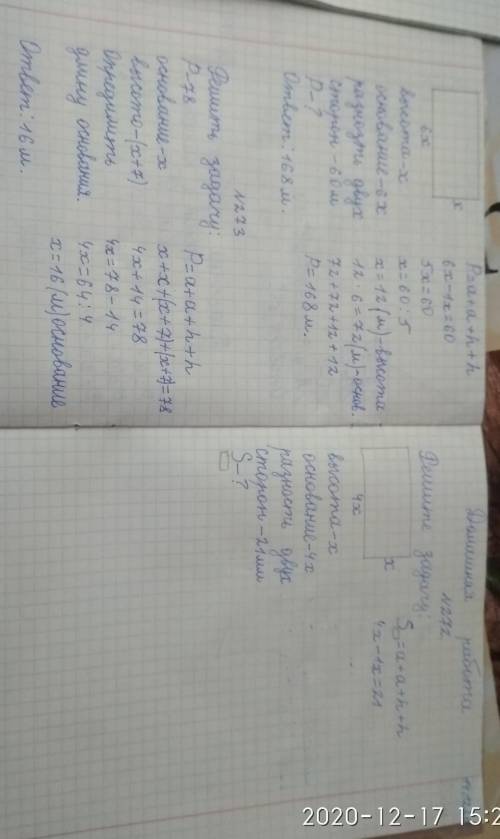 6x
x
высота-x
основание-6x
разность двух
сторон-60м
P-?
Ответ: 168м.
P=a+a+h+h
6x-1x=60
5x=60
x=60:5
x=12(м)-высота
12·6=72(м)-основ.
72+72+12+12
P=168м.
N273
Решить задачу:
P-78
основание-x
высота-(x+7)
Определить
длину основания.
Ответ: 16м.
P=a+a+h+h
x+x+(x+7)+(x+7)=78
4x+14=78
4x=78-14
4x=64:4
x=16(м)основание
Домашняя работа
N272
Решите задачу:
4x
x
высота-x
основание-4x
разность двух
сторон-21мм
S-?
S=a+a+h+h
4x-1x=21
2020-12-17 15:2